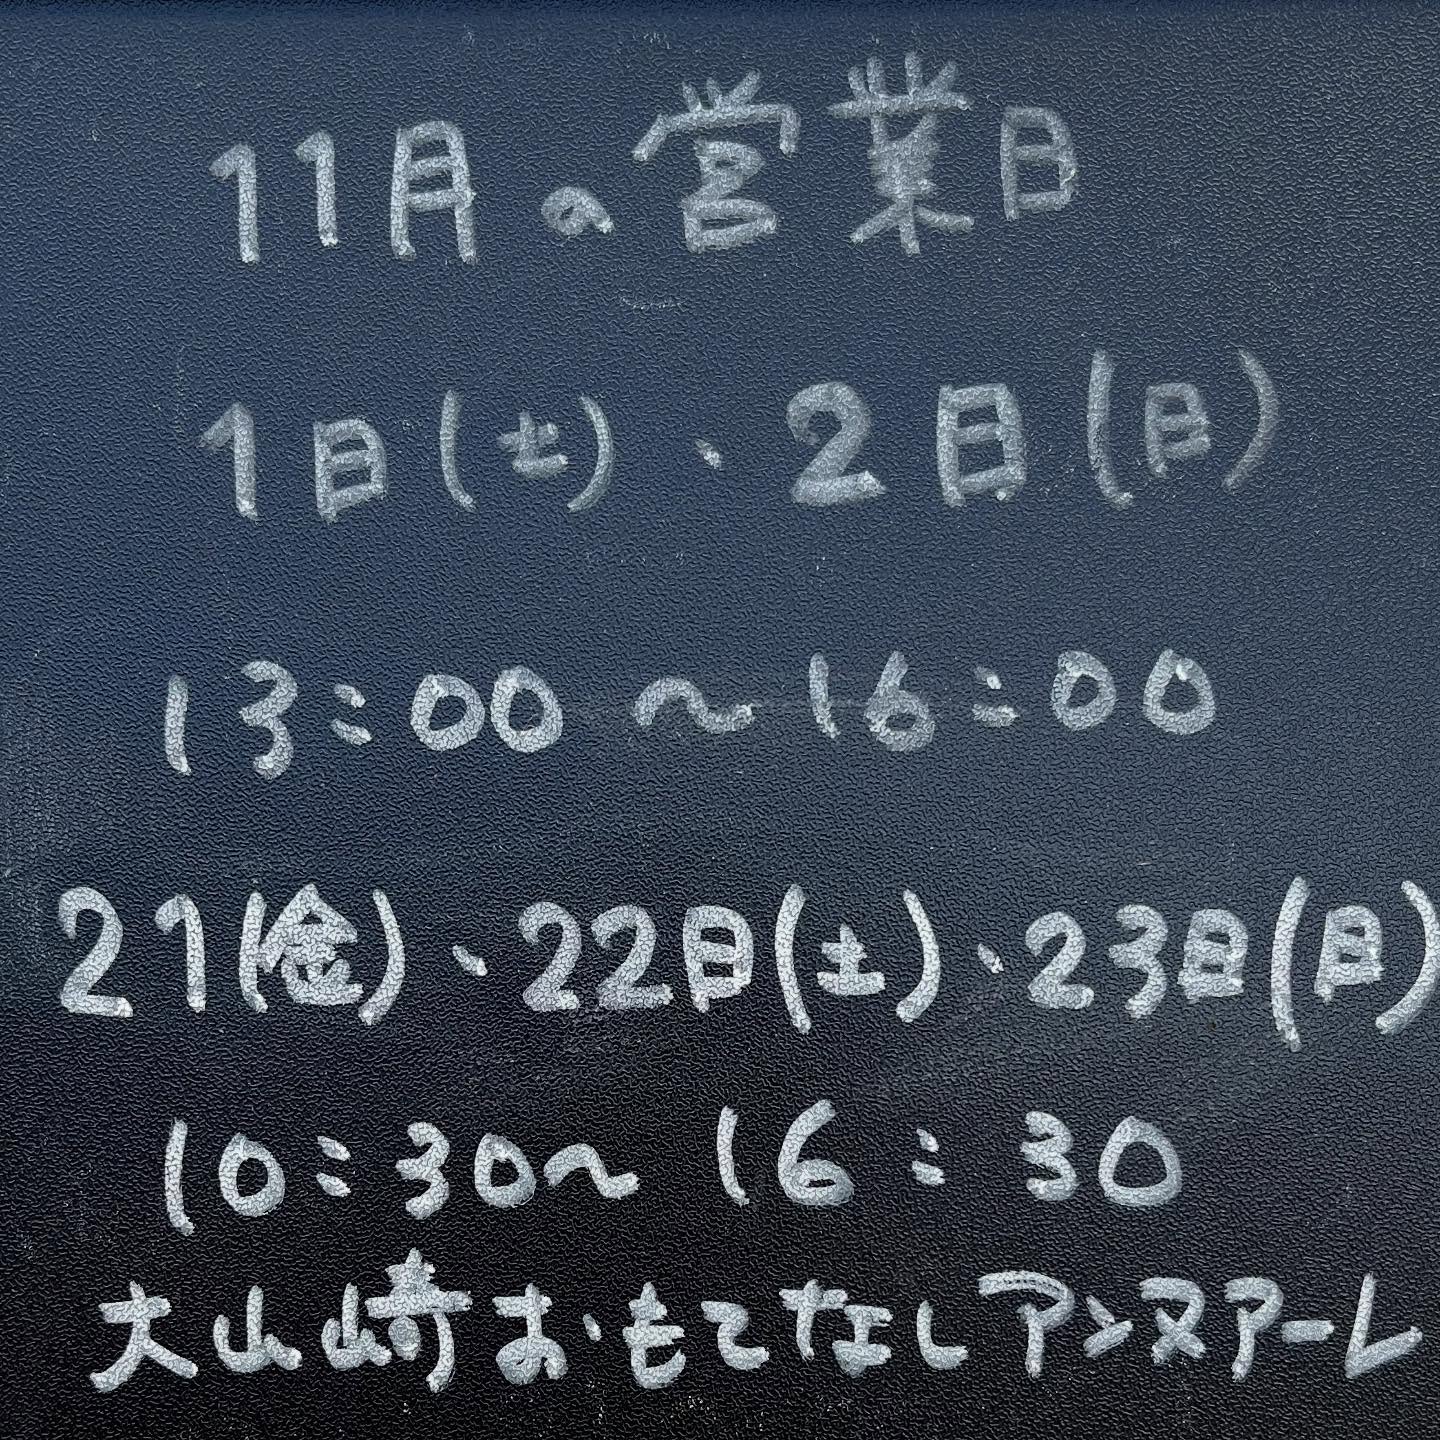 11月の営業日
1日(土)、2日(日)
13:00〜16:00
21(金)、22日(土)、23日(日)
10:30〜16:30
大山崎おもてなしアンヌアーレ